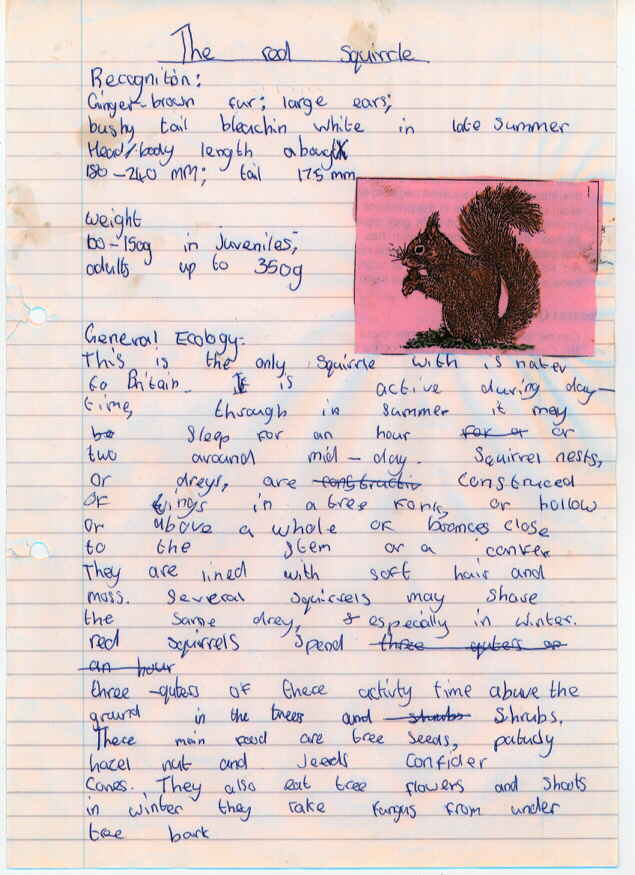 The red Squirrle
Recogniton:
Ginger-brown fur; large ears;
bushy tail bleachin white in late summer
Head/body length about
180-240 MM; tail 175 mm
weight
100-150g in Juveniles;
adults up to 350g
General Ecology-
This is the only squirrle with is nater
to Britain. It is active during day-
time, through in summer it may
be sleep for an hour for or or
two around mid-day. Squirrel nests,
or dreys, are constructiv construced
of twings in a tree fork, or hollow
or above a whole of brances close
to the stem or a confer
They are lined with soft hair and
moss. Several squirrels may share
the same drey, & especially in winter.
red squirrels spend three quters or
an hour
three-quters of there activity time above the
ground in the trees and shrubs Shrubs.
There main food are tree seeds, patudy
hazel nut and seeds confider
Cones. They also eat tree flowers and shoots
in winter they take fungus from under
tree bark